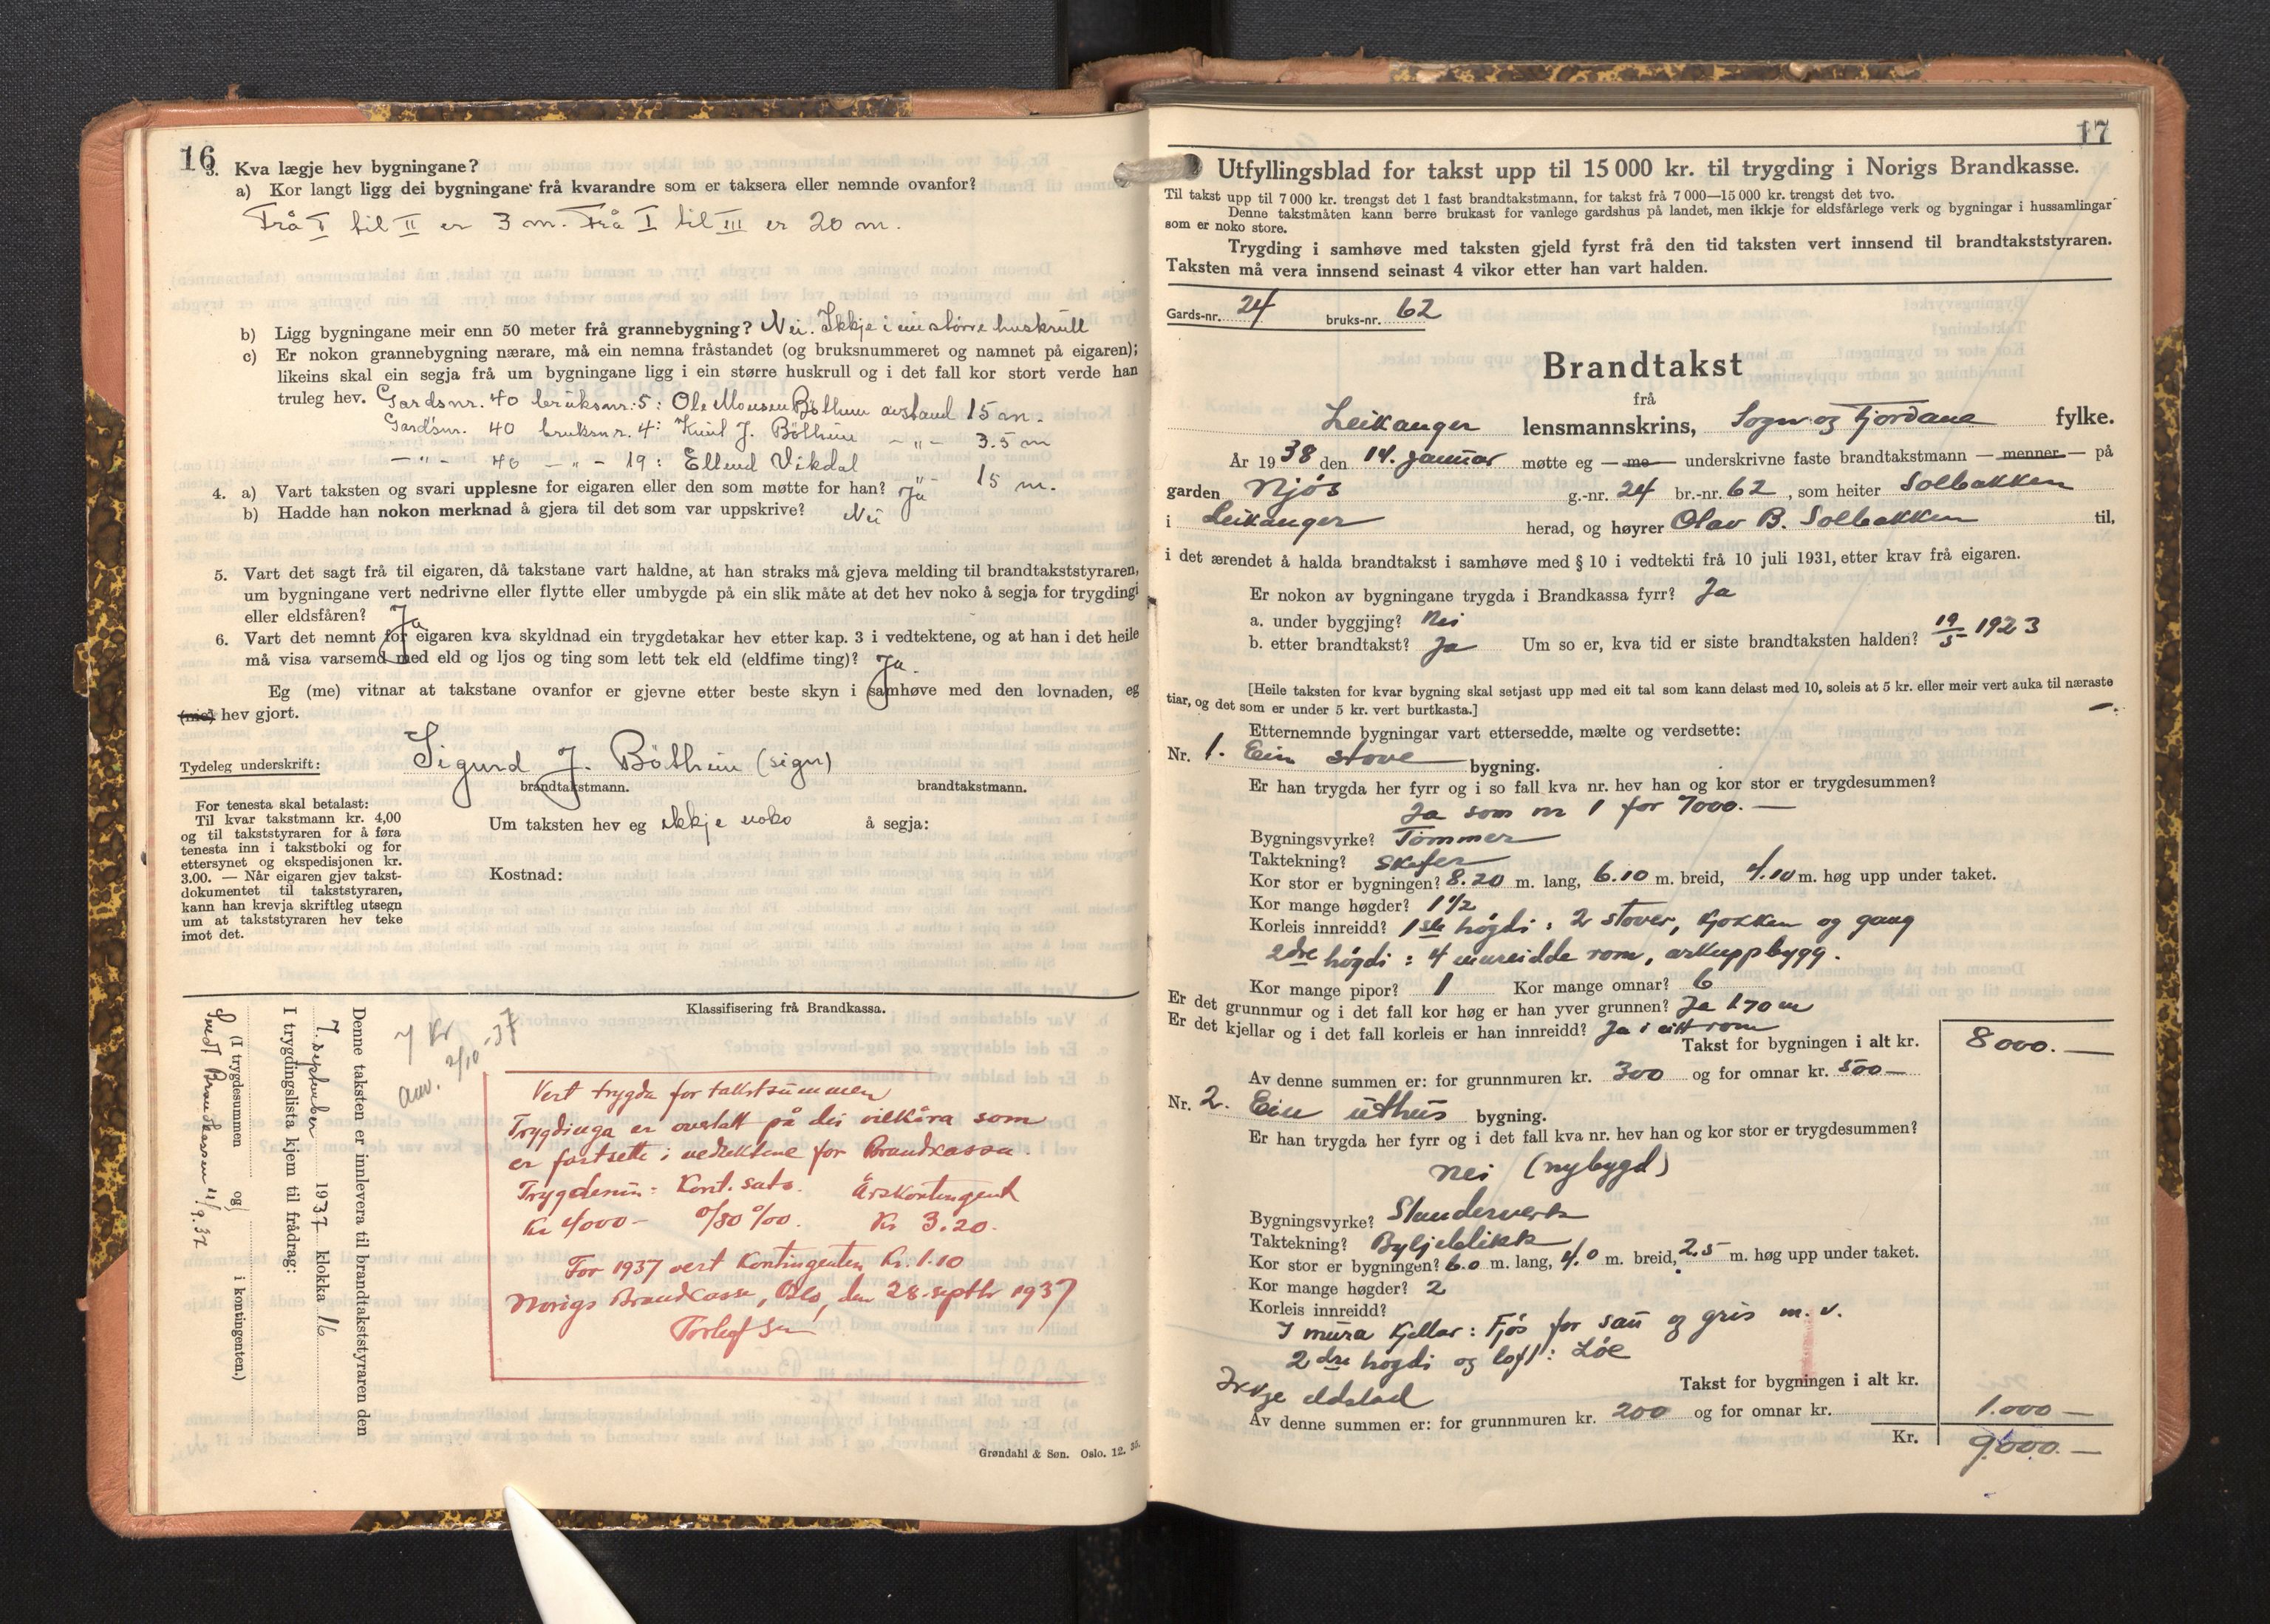 16
3. Kva lægje hev bygningane?
a) Kor langt ligg dei bygningane frå kvarandre som er taksera eller nemnde ovanfor?
Frå I til II er 3 m. Frå I til III er 20 m.
b) Ligg bygningane meir enn 50 meter frå grannebygning? Nei. Ikkje i ein större huskrull
c) Er nokon grannebygning nærare, må ein nemna fråstandet (og bruksnummeret og namnet på eigaren);
likeins skal ein segja frå um bygningane ligg i ein større huskrull og i det fall kor stort verde han
truleg hev. Gardsnr. 40 bruksnr. 5: Ole Monsen Böthun avstand 15 m.
Gardsnr. 40 bruksnr. 4: Knut J. Böthun — " — 3.5 m
— " — 40 — " — 19: Ellend Vikdal " 15 m.
4. a) Vart taksten og svari upplesne for eigaren eller den som møtte for han? Ja
b) Hadde han nokon merknad å gjera til det som var uppskrive? Nei
5. Vart det sagt frå til eigaren, då takstane vart haldne, at han straks må gjeva melding til brandtakststyraren,
um bygningane vert nedrivne eller flytte eller umbygde på ein slik måte at det hev noko å segja for trygdingi
eller eldsfåren? Ja
6. Vart det nemnt for eigaren kva skyldnad ein trygdetakar hev etter kap. 3 i vedtektene, og at han i det heile
må visa varsemd med eld og ljos og ting som lett tek eld (eldfime ting)? Ja.
Eg (me) vitnar at takstane ovanfor er gjevne etter beste skyn i samhøve med den lovnaden, eg
(me) hev gjort.
Tydeleg underskrift: Sigurd J. Böthun (sign)
brandtakstmann. brandtakstmann.
For tenesta skal betalast:
Til kvar takstmann kr. 4,00
og til takststyraren for å føra
tenesta inn i takstboki og for
ettersynet og ekspedisjonen kr.
3.00. — Når eigaren gjev takst-
dokumentet til takststyraren,
kann han krevja skriftleg utsegn
um at takststyraren hev teke
imot det.
Um taksten hev eg ikkje noko å segja:
Kostnad:
Klassifisering frå Brandkassa.
Denne taksten er innlevera til brandtakststyraren den
7. september 1937 klokka 16
I trygdingslista kjem til frådrag:
(I trygdesummen og i kontingenten.)
Sendt Brandkassen 11/9.37
7 Kr
anv. 2/10 -37
Vert trygda for takstsummen
Trygdinga er overlatt på dei vilkåra som
er fastsette i vedtektene for Brandkassa.
Trygdesum: Kont. sats. Årskontingent
Kr 4000- 0/80 ‰. Kr 3.20.
For 1937 vert Kontingenten Kr. 1.10
Norigs Brandkasse, Oslo, den 28. septbr 1937
Grøndahl & Søn. Oslo. 12. 35.
17
Utfyllingsblad for takst upp til 15 000 kr. til trygding i Norigs Brandkasse.
Til takst upp til 7 000 kr. trengst det 1 fast brandtakstmann, for takst frå 7 000—15 000 kr. trengst det tvo.
Denne takstmåten kann berre brukast for vanlege gardshus på landet, men ikkje for eldsfårlege verk og bygningar i hussamlingar
som er noko store.
Trygding i samhøve med taksten gjeld fyrst frå den tid taksten vert innsend til brandtakststyraren.
Taksten må vera innsend seinast 4 vikor etter han vart halden.
Gards-nr. 24 bruks-nr. 62
Brandtakst
frå
Leikanger lensmannskrins, Sogn og Fjordane fylke.
År 1938 den 14. januar møtte eg — me — underskrivne faste brandtakstmann — menner — på
garden Njøs g.-nr. 24 br.-nr. 62, som heiter Solbakken
i Leikanger herad, og høyrer Olav B. Solbakken til,
i det ærendet å halda brandtakst i samhøve med § 10 i vedtekti frå 10 juli 1931, etter krav frå eigaren.
Er nokon av bygningane trygda i Brandkassa fyrr? Ja
a. under byggjing? Nei
b. etter brandtakst? Ja Um so er, kva tid er siste brandtaksten halden? 19/5 1923
[Heile taksten for kvar bygning skal setjast upp med eit tal som kann delast med 10, soleis at 5 kr. eller meir vert auka til næraste
tiar, og det som er under 5 kr. vert burtkasta.]
Etternemnde bygningar vart ettersedde, mælte og verdsette:
Nr. 1. Ein stove bygning.
Er han trygda her fyrr og i so fall kva nr. hev han og kor stor er trygdesummen?
Ja som nr 1 for 7000.—
Bygningsvyrke? Tømmer
Taktekning? Skifer
Kor stor er bygningen? 8.20 m. lang, 6.10 m. breid, 4.10 m. høg upp under taket.
Kor mange høgder? 1 1/2
Korleis innreidd? 1ste høgdi: 2 stover, kjøkken og gang
2dre høgdi: 4 innreidde rom, arkuppbygg.
Kor mange pipor? 1 Kor mange omnar? 6
Er det grunnmur og i det fall kor høg er han yver grunnen? Ja 1.70 m
Er det kjellar og i det fall korleis er han innreidd? Ja i eitt rom
Takst for bygningen i alt kr. 8000.—
Av denne summen er: for grunnmuren kr. 300 og for omnar kr. 500—
Nr. 2. Ein uthus bygning.
Er han trygda her fyrr og i det fall kva nr. hev han og kor stor er trygdesummen?
Nei (nybygd)
Bygningsvyrke? Stenderverk
Taktekning? Bylgjeblikk
Kor stor er bygningen? 6.0 m. lang, 4.0 m. breid, 2.5 m. høg upp under taket.
Kor mange høgder? 2
Korleis innreidd?
I mura kjellar: Fjøs for sau og gris m. v.
2dre høgdi og loft: Løe
Ikkje eldstad
Takst for bygningen i alt kr. 1.000—
Av denne summen er: for grunnmuren kr. 200 og for omnar kr.
Kr. 9000.—